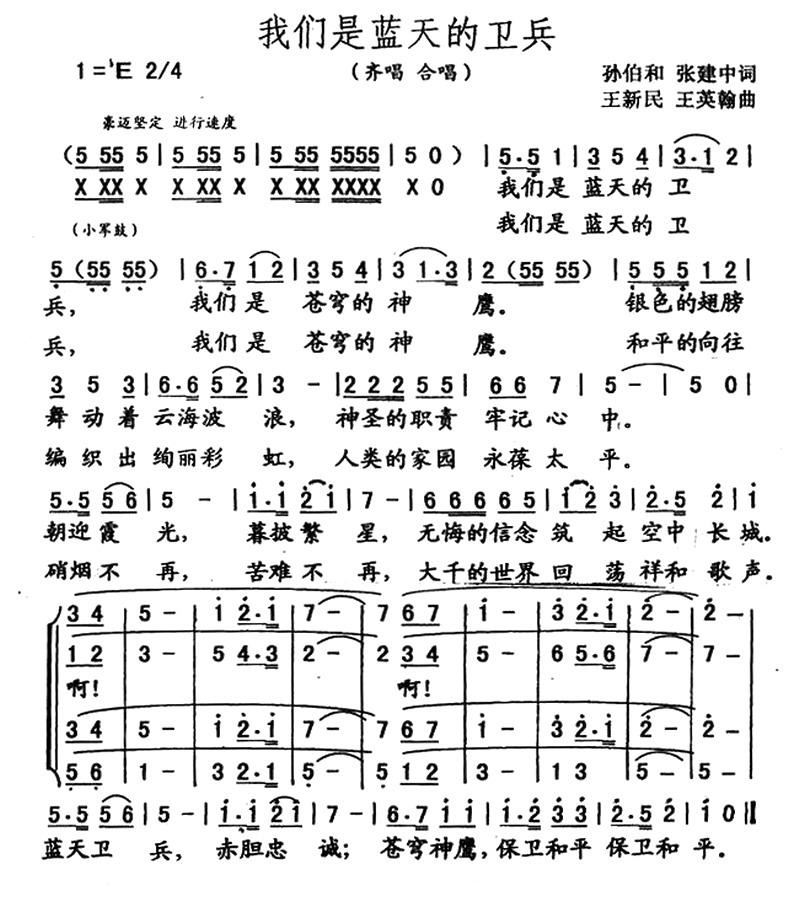 我们是蓝天的卫兵
1=♭E 2/4 （齐唱 合唱） 孙伯和 张建中词
王新民 王英翰曲
豪迈坚定 进行速度
(5 55 5 | 5 55 5 | 5 55 5555 | 5 0) | 5·5 1 | 3 5 4 | 3·1 2 |
X XX X X XX X X XX XXXX X 0 我们是 蓝天的 卫
（小军鼓） 我们是 蓝天的 卫
5 (55 55) | 6·7 1 2 | 3 5 4 | 3 1·3 | 2 (55 55) | 5 5 5 1 2 |
兵， 我们是 苍穹的 神 鹰。 银色的翅膀
兵， 我们是 苍穹的 神 鹰。 和平的向往
3 5 3 | 6·6 5 2 | 3 - | 2 2 2 5 5 | 6 6 7 | 5 - | 5 0 |
舞 动 着 云海波 浪， 神圣的职责 牢记 心 中。
编 织 出 绚丽彩 虹， 人类的家园 永葆 太 平。
5·5 5 6 | 5 - | i·i 2 i | 7 - | 6 6 6 6 5 | i 2 3 | 2·5 2 | i
朝迎 霞 光， 暮披繁 星， 无悔的信念 筑 起 空中 长 城。
硝烟不 再， 苦难不 再， 大千的世界 回 荡 祥和 歌 声。
3 4 | 5 - | i 2·i | 7 - | 7 6 7 | i - | 3 2·i | 2 - | 2 -
1 2 | 3 - | 5 4·3 | 2 - | 2 3 4 | 5 - | 6 5·6 | 7 - | 7 -
啊! 啊!
3 4 | 5 - | i 2·i | 7 - | 7 6 7 | i - | 3 2·i | 2 - | 2 -
5 6 | 1 - | 3 2·1 | 5 - | 5 1 2 | 3 - | 1 3 | 5 - | 5 -
5·5 5 6 | 5 - | i·i 2 i | 7 - | 6·7 i i | i·2 3 3 | 2·5 2 | i 0 ‖
蓝天卫 兵， 赤胆忠 诚； 苍穹神鹰，保卫和平 保卫和 平。